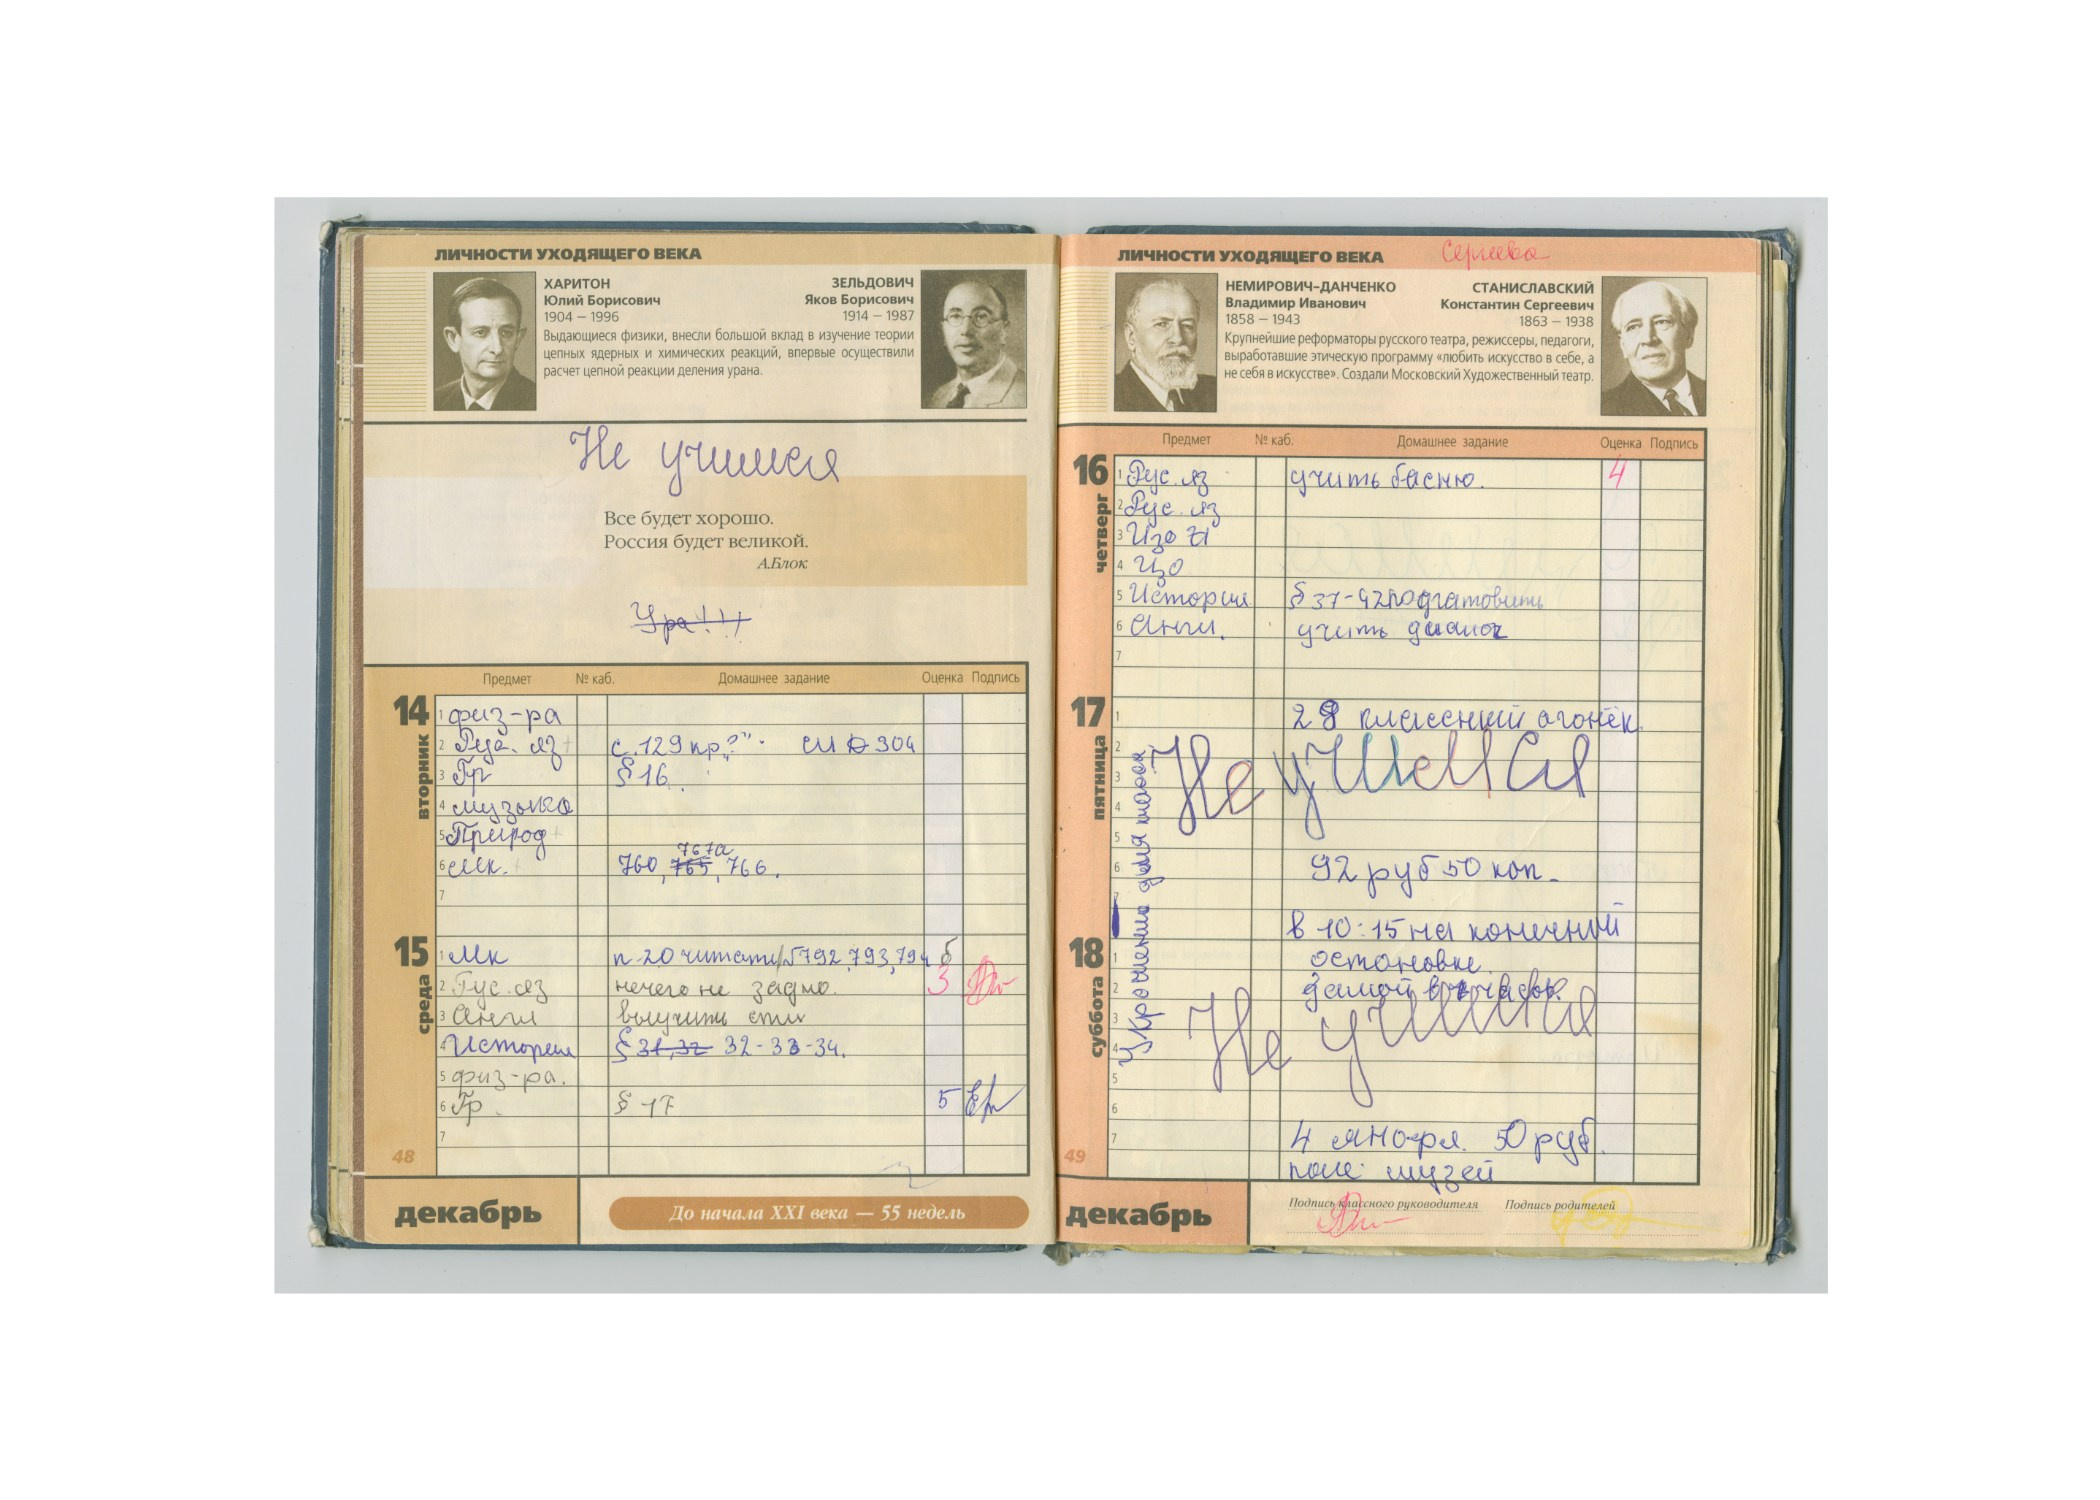 ЛИЧНОСТИ УХОДЯЩЕГО ВЕКА
ХАРИТОН
Юлий Борисович
1904 – 1996
ЗЕЛЬДОВИЧ
Яков Борисович
1914 – 1987
Выдающиеся физики, внесли большой вклад в изучение теории
цепных ядерных и химических реакций, впервые осуществили
расчет цепной реакции деления урана.
Не учимся
Все будет хорошо.
Россия будет великой.
А.Блок
Ура!!!
Предмет № каб. Домашнее задание Оценка Подпись
14 вторник
1 физ-ра
2 Рус. яз с. 129 304
3 Гр § 16.
4 музыка
5 Природ
6 Мк. 760, 765, 767а, 766.
7
15 среда
1 Мк п. 20 читати 792, 793, 794 5
2 Рус. яз нечего не задно. 3
3 Англ выучить стих
4 История § 31, 32 32-33-34.
5 физ-ра.
6 Гр. § 17 5
7
48
декабрь
До начала XXI века — 55 недель
ЛИЧНОСТИ УХОДЯЩЕГО ВЕКА
Сергеева
НЕМИРОВИЧ-ДАНЧЕНКО
Владимир Иванович
1858 – 1943
СТАНИСЛАВСКИЙ
Константин Сергеевич
1863 – 1938
Крупнейшие реформаторы русского театра, режиссеры, педагоги,
выработавшие этическую программу «любить искусство в себе, а
не себя в искусстве». Создали Московский Художественный театр.
Предмет № каб. Домашнее задание Оценка Подпись
16 четверг
1 Рус. яз учить басню. 4
2 Рус. яз
3 Изо
4
5 История § 37-42 подгатовить
6 Англ. учить диалог
7
17 пятница
1 28 классний агонёк.
2
3 Не учимся
4
5
6 92 руб 50 коп.
7
Украшения для класса
в 10:15 на конечний
остоновке.
18 суббота
1
2 дамой в часов.
3 Не учимся
4
5
6
7 4 января. 50 руб.
музей
49
декабрь
Подпись классного руководителя
Подпись родителей